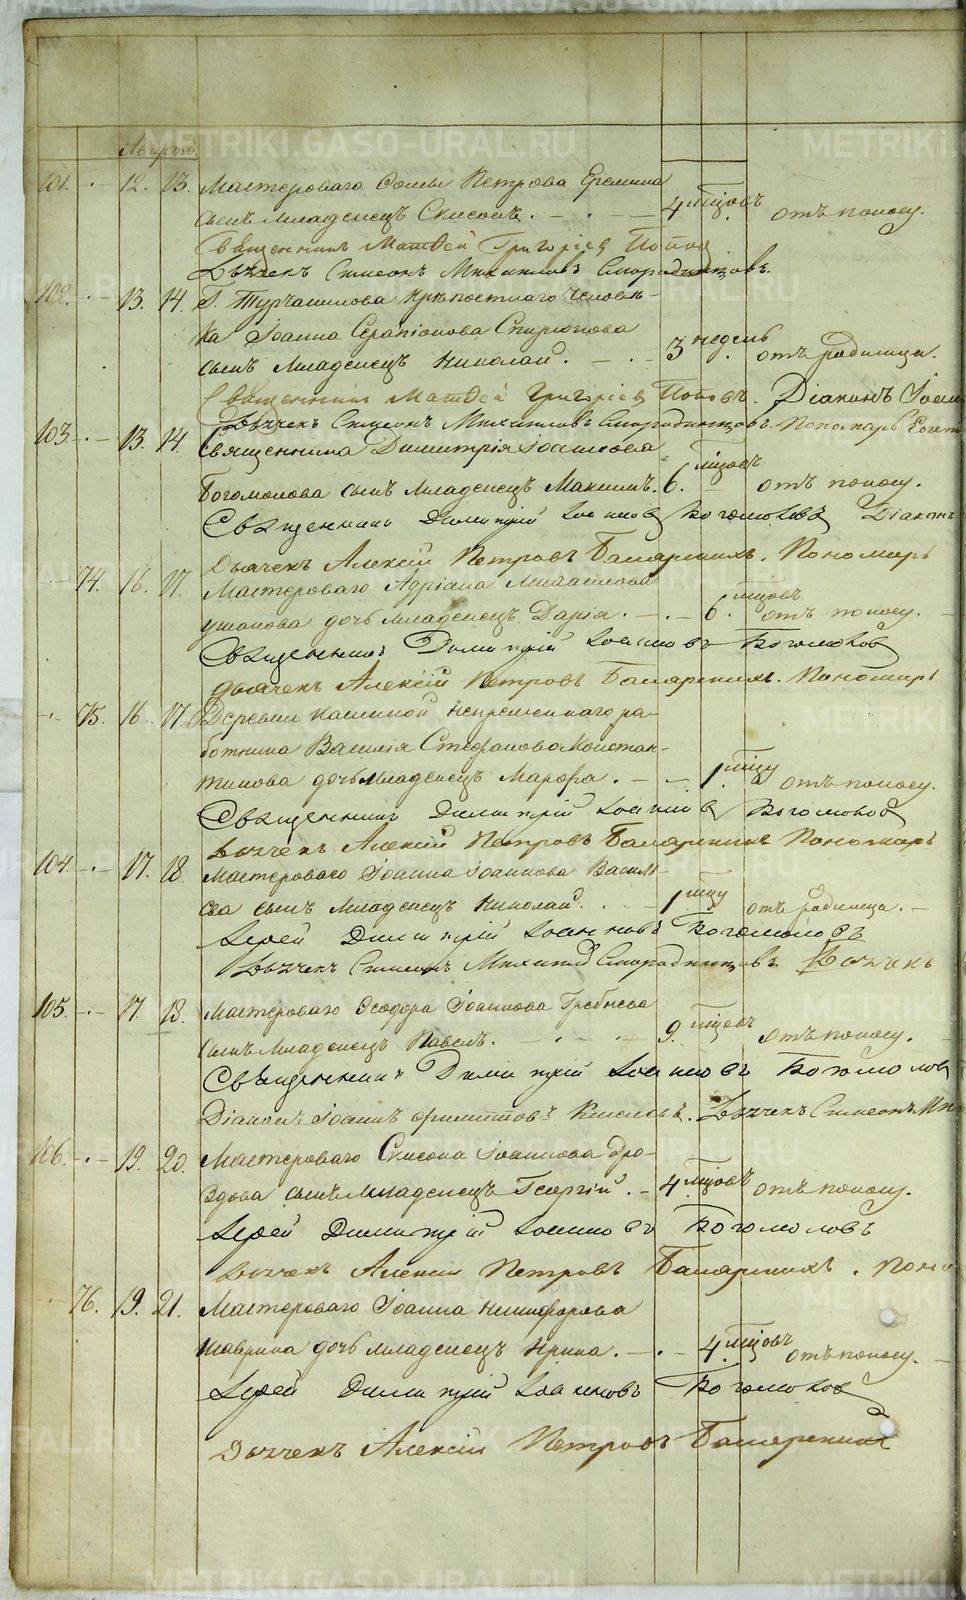 METRIKI.GASO-URAL.RU
Августъ.
101. - 12. 13. Мастероваго Сомы Петрова Еремина
сынъ младенецъ Симеонъ. 4 мцовъ отъ поносу.
Священникъ Матвей Григоріев Попов
Дьячекъ Симеонъ Михаиловъ Смородинцовъ.
102. - 13. 14. Г. Турчанинова крѣпостнаго человѣ-
ка Іоанна Серапіонова Спирюкова
сынъ младенецъ Николай. 3 недель отъ родимца.
Священникъ Матвей Григоріев Поповъ. Діаконъ Іоан
Дьячекъ Симеонъ Михаиловъ Смородинцовъ. Пономарь Евгени
103. - 13. 14. Священника Димитрія Іоаннова
Богомолова сынъ младенецъ Максимъ. 6. мцовъ отъ поносу.
Священникъ Димитрій Іоаннов Богомоловъ Діаконъ
Дьячекъ Алексій Петровъ Бажарскихъ. Пономарь
- 74. 16. 17. Мастероваго Адріана
Ушакова дочь младенецъ Дарія. 6. мцовъ отъ поносу.
Священникъ Димитрій Іоанновъ Богомолов
дьячекъ Алексій Петровъ Пономарь
- 75. 16. 17. Деревни Каменной непременнаго ра-
ботника Василія Стефанова Констан-
тинова дочь младенецъ Марфа. 1. мцу отъ поносу.
Священникъ Димитрій Іоаннов Богомолов
Дьячекъ Алексій Петровъ Пономарь
104. - 17. 18. Мастероваго Іоанна Іоаннова Василь-
ева сынъ младенецъ Николай. 1 мцу отъ родимца.
Іерей Димитрій Іоанновъ Богомоловъ
Дьячекъ Симеонъ Михаилов Смородинцовъ. Дьячекъ
105. - 17. 18. Мастероваго Ѳеодора Іоаннова Гребнева
сынъ младенецъ Павелъ. 9. мцовъ отъ поносу.
Священникъ Димитрій Іоанновъ Богомолов
Діаконъ Іоаннъ Филиповъ Киселевъ. Дьячекъ Симеонъ Ми
106. - 19. 20. Мастероваго Симеона Іоаннова Дро-
здова сынъ младенецъ Георгій. 4 мцовъ отъ поносу.
Іерей Димитрій Іоанновъ Богомоловъ
Дьячекъ Алексій Петровъ Поно
- 76. 19. 21. Мастероваго Іоанна Никифорова
Шаврина дочь младенецъ Ирина. 4. мцовъ отъ поносу.
Іерей Димитрій Іоанновъ Богомолов
Дьячекъ Алексій Петровъ
METRIKI.GASO-URAL.RU